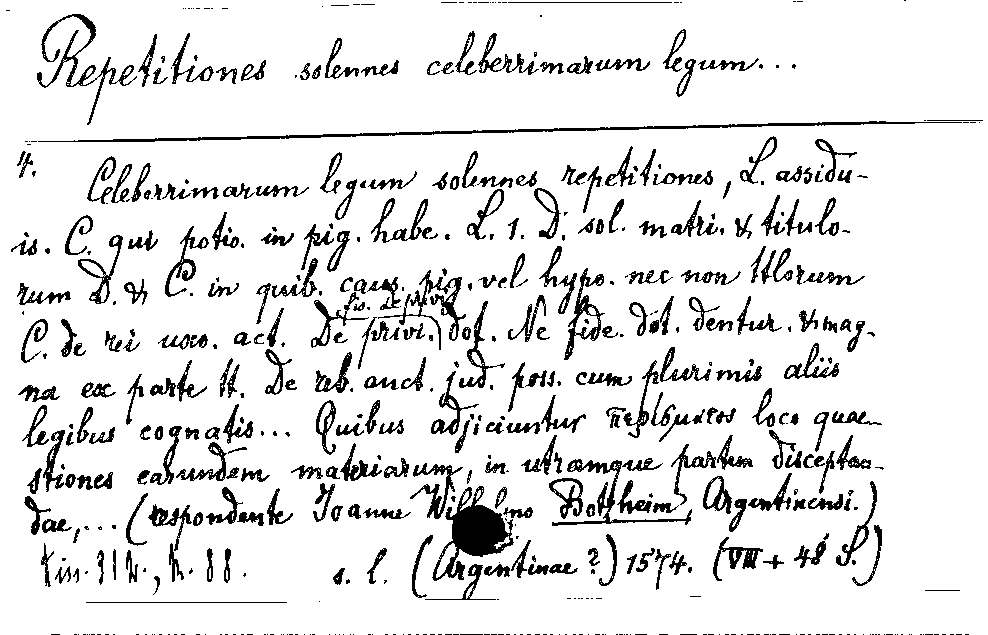 Repetitiones solennes celeberrimarum legum...
4.
Celeberrimarum legum solennes repetitiones, L. assidu-
is. C. qui potio. in pig. habe. L. 1. D. sol. matri. & titulo-
rum D. & C. in quib. caus. pig. vel hypo. nec non ttlorum
fis. De privi
C. de rei uxo. act. De privi. dot. Ne fide. dot. dentur. & mag-
na ex parte tt. De reb. auct. jud. poss. cum plurimis aliis
legibus cognatis... Quibus adjiciuntur loco quae-
stiones earundem materiarum, in utramque partem discepta-
dae,... (respondente Joanne Botzheim, Argentinensi.)
88. s. l. (Argentinae ?) 1574. (VIII + 48 S.)